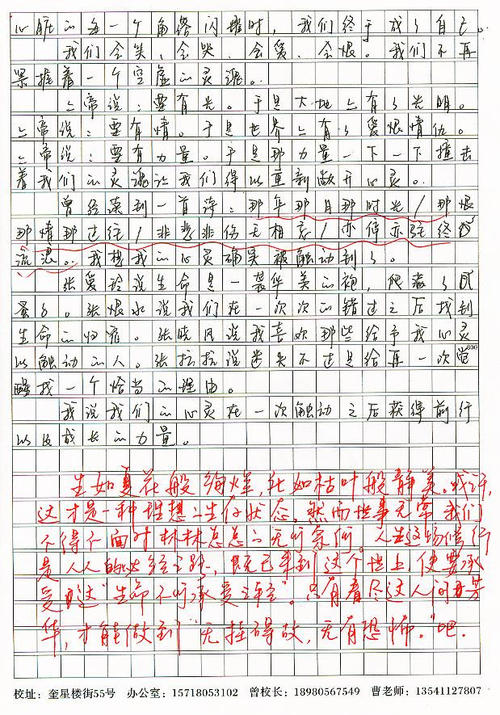 心脏的每一个角落闪耀时，我们终于成了自己。
我们会笑，会哭，会爱，会恨。我们不再
紧握着一个空虚的灵魂。
上帝说：要有光。于是大地上有了光明。
上帝说：要有情。于是世界上有了爱恨情仇。
上帝说：要有力量。于是那力量一下一下撞击
着我们的灵魂让我们得以重新敞开心灵。
曾经读到一首诗：那年那月那时光/那恨
那情那过往/非悲非伤无相忘/亦停亦驻终
流浪。我想我的心灵确实被触动到了。
张爱玲说生命是一袭华美的袍，爬满了
蚤子。张恨水说我们在一次次的错过之后找到
生命的归宿。张晓风说我喜欢那些给予我心灵
以触动的人。张抗抗说迷失不过是给再一次
找一个恰当的理由。
我说我们的心灵在一次触动之后获得前行
以及成长的力量。
生如夏花般绚烂，死如枯叶般静美。或许，
这才是一种理想的生存状态，然而世事无常我们
不得不面对林林总总的无可奈何。人生这场修行
是人人的必经之路，既已来到这个世上便要承
受这“生命不可承受之轻”。只有看尽这人间芳
华，才能做到“无挂碍故，无有恐怖”吧。
校址：奎星楼街55号 办公室：15718053102 曾校长：18980567549 曹老师：13541127807